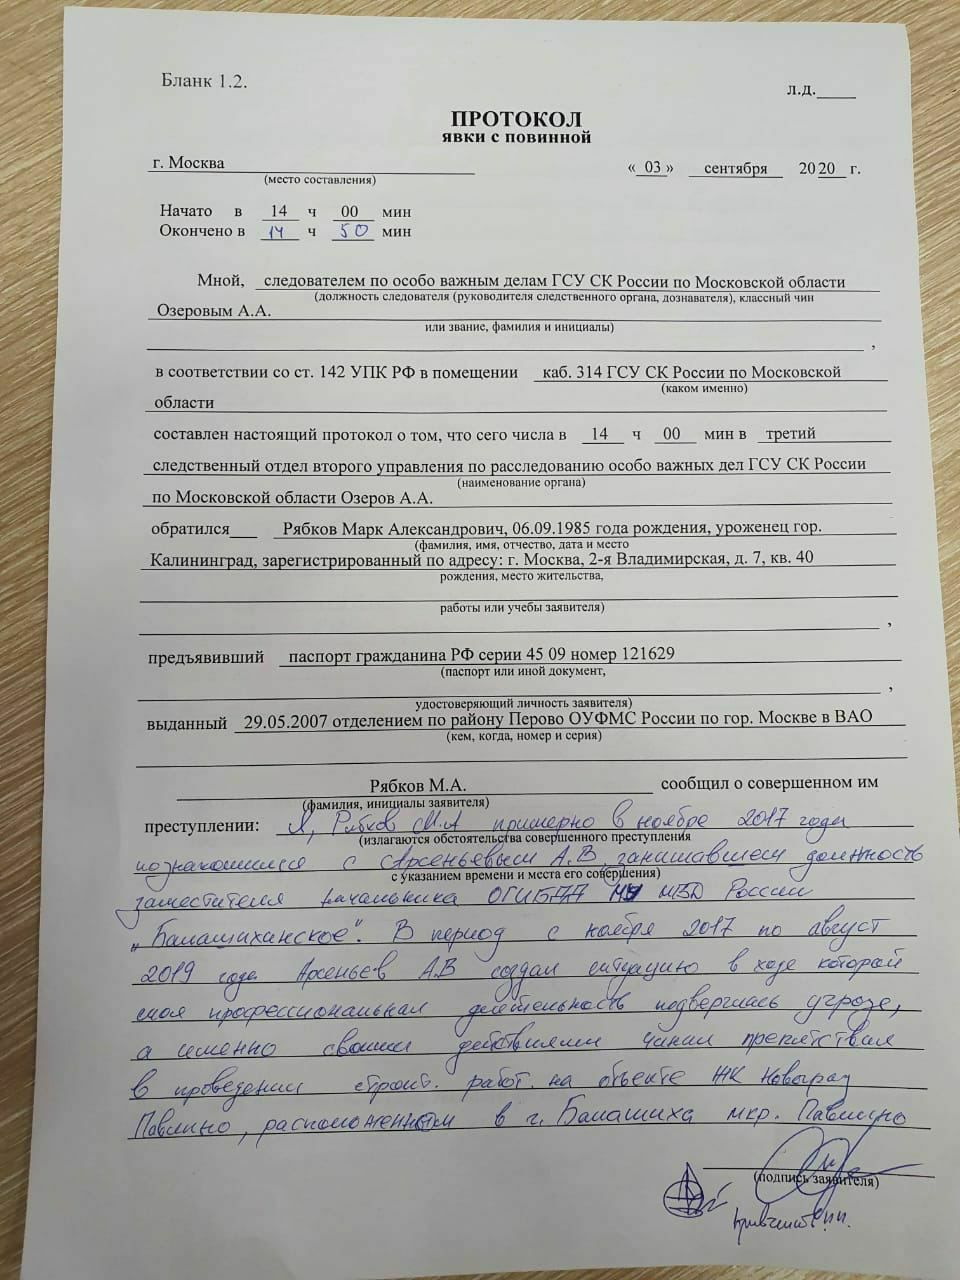 Бланк 1.2.
л.д.____
ПРОТОКОЛ
явки с повинной
г. Москва
« 03 » сентября 2020 г.
(место составления)
Начато в 14 ч 00 мин
Окончено в 14 ч 50 мин
Мной, следователем по особо важным делам ГСУ СК России по Московской области
(должность следователя (руководителя следственного органа, дознавателя), классный чин
Озеровым А.А.
или звание, фамилия и инициалы)
,
в соответствии со ст. 142 УПК РФ в помещении каб. 314 ГСУ СК России по Московской
(каком именно)
области
составлен настоящий протокол о том, что сего числа в 14 ч 00 мин в третий
следственный отдел второго управления по расследованию особо важных дел ГСУ СК России
(наименование органа)
по Московской области Озеров А.А.
обратился___ Рябков Марк Александрович, 06.09.1985 года рождения, уроженец гор.
(фамилия, имя, отчество, дата и место
Калининград, зарегистрированный по адресу: г. Москва, 2-я Владимирская, д. 7, кв. 40
рождения, место жительства,
работы или учебы заявителя)
,
предъявивший паспорт гражданина РФ серии 45 09 номер 121629
(паспорт или иной документ,
,
удостоверяющий личность заявителя)
выданный 29.05.2007 отделением по району Перово ОУФМС России по гор. Москве в ВАО
(кем, когда, номер и серия)
Рябков М.А. сообщил о совершенном им
(фамилия, инициалы заявителя)
преступлении: Я, Рябков М.А примерно в ноябре 2017 года
(излагаются обстоятельства совершенного преступления
познакомился с Арсеньевым А.В, занимавшем должность
с указанием времени и места его совершения)
заместителя начальника ОГИБДД МУ МВД России
„Балашихинское". В период с ноября 2017 по август
2019 года Арсеньев А.В создал ситуацию в ходе которой
моя профессиональная деятельность подверглась угрозе,
а именно своими действиями чинил препятствия
в проведении строит. работ. на объекте ЖК Новоград
Павлино, расположенном в г. Балашиха мкр. Павлино
(подпись заявителя)